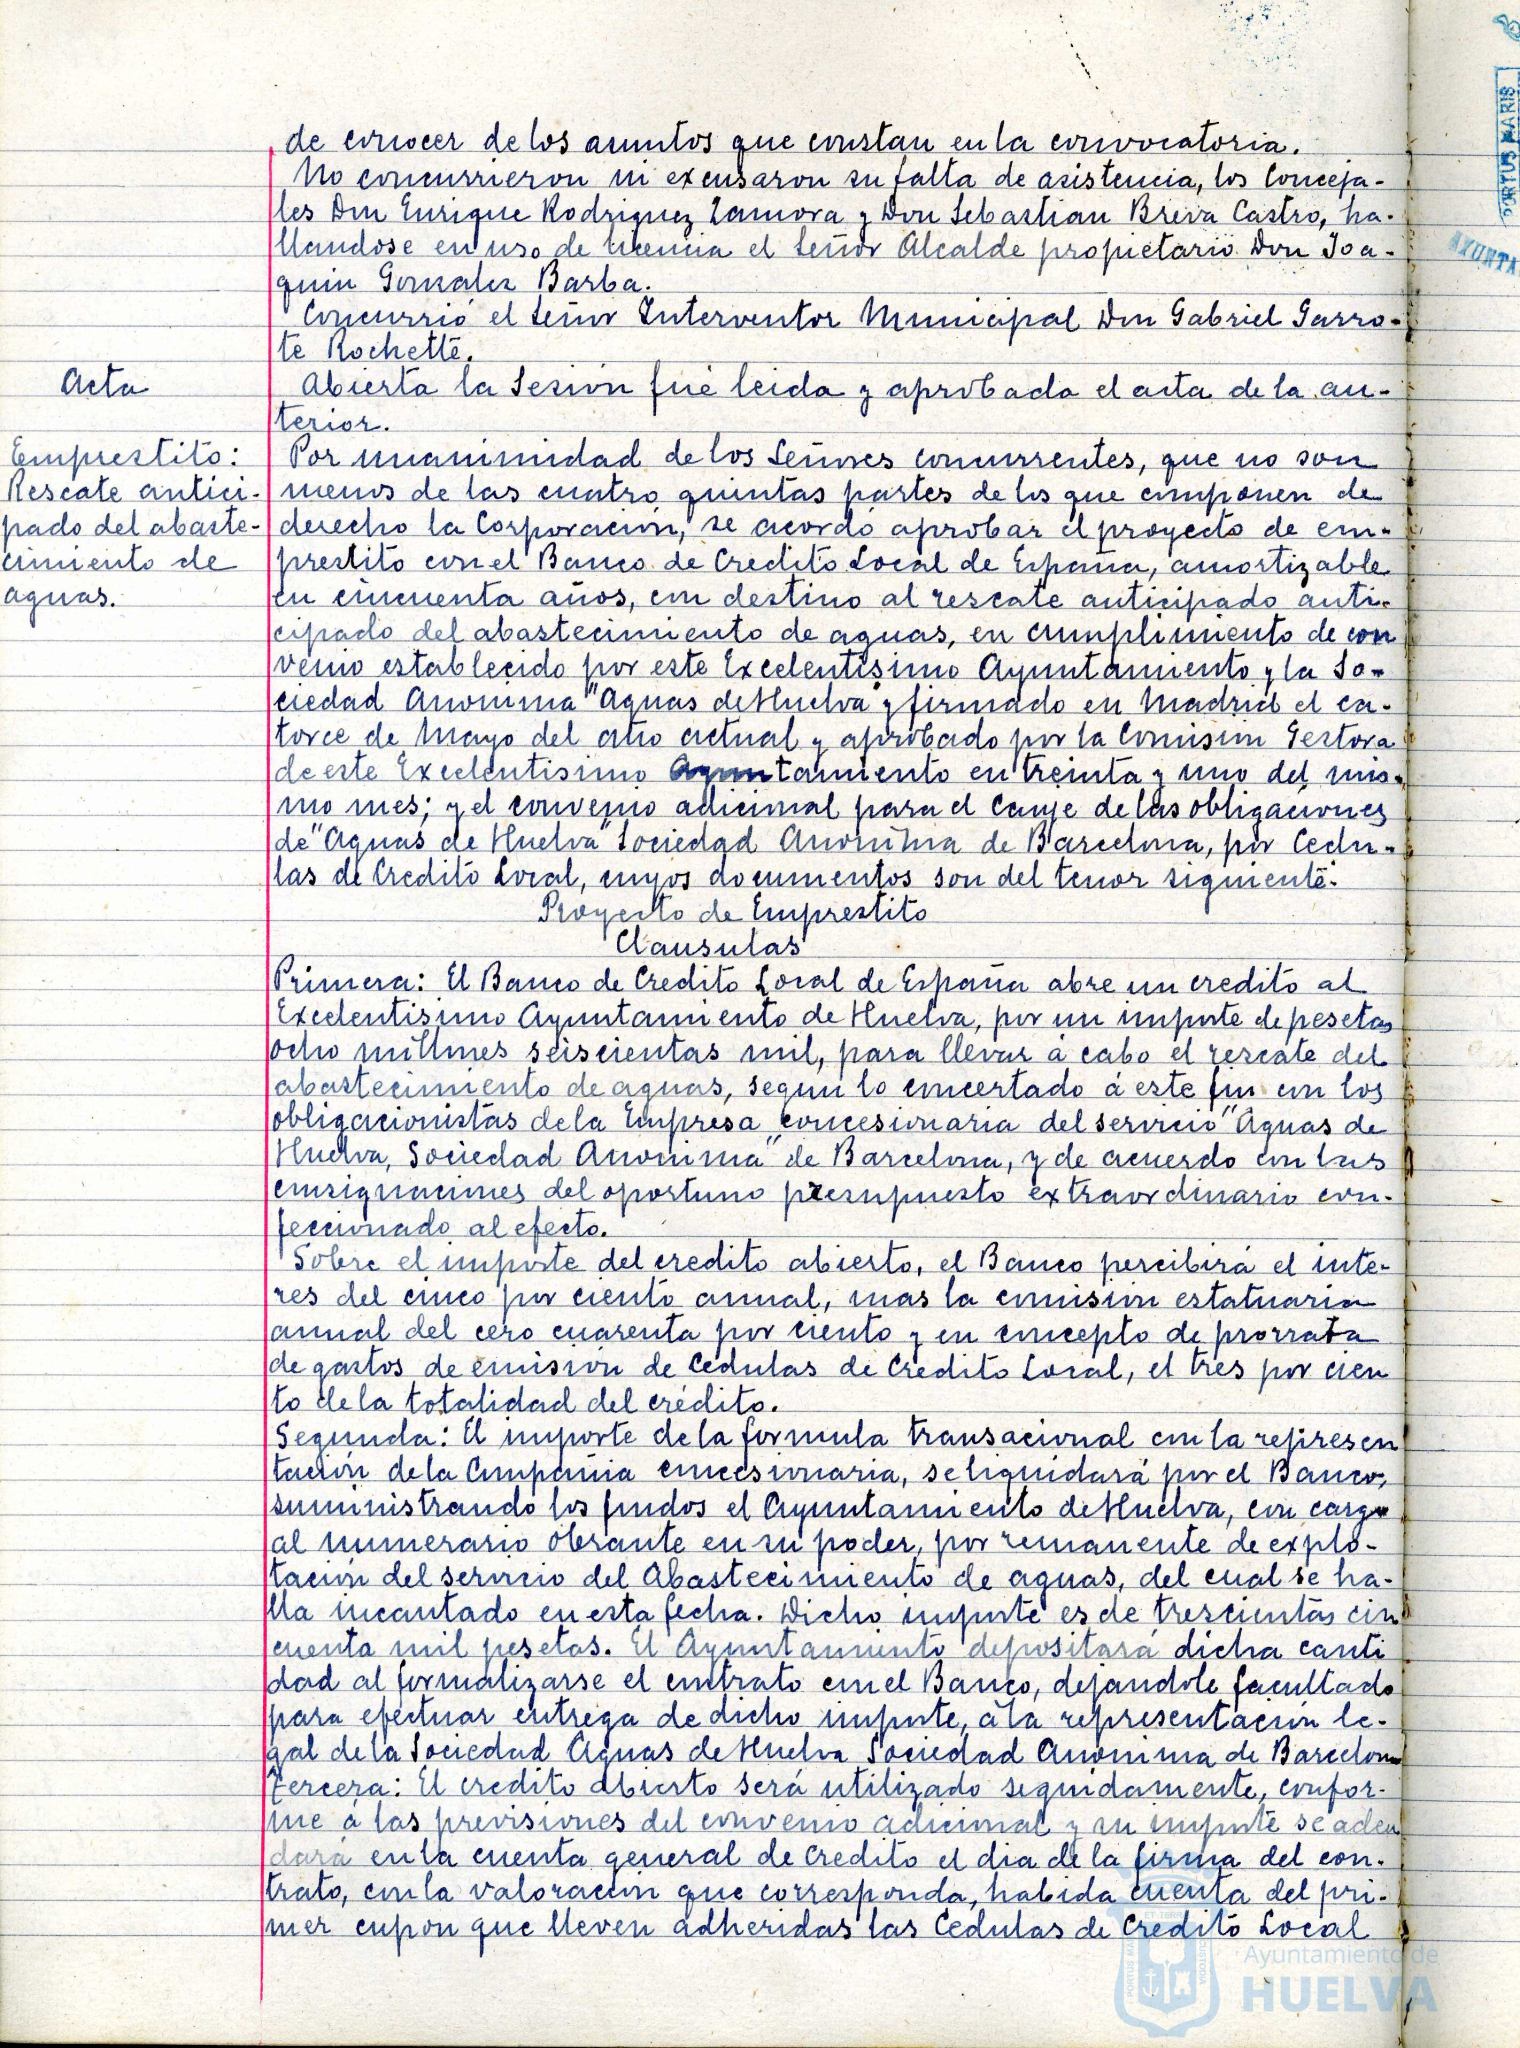 de conocer de los asuntos que constan en la convocatoria.
No concurrieron ni excusaron su falta de asistencia, los Conceja-
les Don Enrique Rodriguez Zamora y Don Sebastian Breva Castro, ha-
llandose en uso de licencia el Señor Alcalde propietario Don Joa-
quin Gonzalez Barba.
Concurrió el Señor Interventor Municipal Don Gabriel Garro-
te Rochette.
Acta
Abierta la Sesión fué leida y aprobada el acta de la an-
terior.
Emprestito:
Rescate antici-
pado del abaste-
cimiento de
aguas.
Por unanimidad de los Señores concurrentes, que no son
menos de las cuatro quintas partes de los que componen de
derecho la Corporación, se acordó aprobar el proyecto de em-
prestito con el Banco de Credito Local de España, amortizable
en cincuenta años, con destino al rescate anticipado anti-
cipado del abastecimiento de aguas, en cumplimiento de con
venio establecido por este Excelentisimo Ayuntamiento y la So-
ciedad Anonima "Aguas de Huelva" y firmado en Madrid el ca-
torce de Mayo del año actual y aprobado por la Comision Gestora
de este Excelentisimo Ayuntamiento en treinta y uno del mis-
mo mes; y el convenio adicional para el canje de las obligaciones
de "Aguas de Huelva" Sociedad Anonima de Barcelona, por Cedu-
las de Credito Local, cuyos documentos son del tenor siguiente:
Proyecto de Emprestito
Clausulas
Primera: El Banco de Credito Local de España abre un credito al
Excelentisimo Ayuntamiento de Huelva, por un importe de pesetas
ocho millones seiscientas mil, para llevar á cabo el rescate del
abastecimiento de aguas, segun lo concertado á este fin con los
obligacionistas de la Empresa concesionaria del servicio "Aguas de
Huelva, Sociedad Anonima" de Barcelona, y de acuerdo con las
consignaciones del oportuno presupuesto extraordinario con-
feccionado al efecto.
Sobre el importe del credito abierto, el Banco percibirá el inte-
res del cinco por ciento annual, mas la comision estatuaria
annual del cero cuarenta por ciento y en concepto de prorrata
de gastos de emisión de Cedulas de Credito Local, el tres por cien
to de la totalidad del crédito.
Segunda: El importe de la formula transacional con la represen
tación de la Compañia concesionaria, se liquidará por el Banco,
suministrando los fondos el Ayuntamiento de Huelva, con cargo
al numerario obrante en su poder, por remanente de explo-
tación del servicio del Abastecimiento de aguas, del cual se ha-
lla incautado en esta fecha. Dicho importe es de trescientas cin
cuenta mil pesetas. El Ayuntamiento depositará dicha canti
dad al formalizarse el contrato con el Banco, dejandole facultado
para efectuar entrega de dicho importe, á la representación le-
gal de la Sociedad Aguas de Huelva Sociedad Anonima de Barcelona
Tercera: El credito abierto será utilizado seguidamente, confor-
me á las previsiones del convenio adicional y su importe se aden
dará en la cuenta general de Credito el dia de la firma del con-
trato, con la valoración que corresponda, habida cuenta del pri-
mer cupon que lleven adheridas las Cedulas de Credito Local
PORTUS MARIS
AYUNTA
Ayuntamiento de
HUELVA